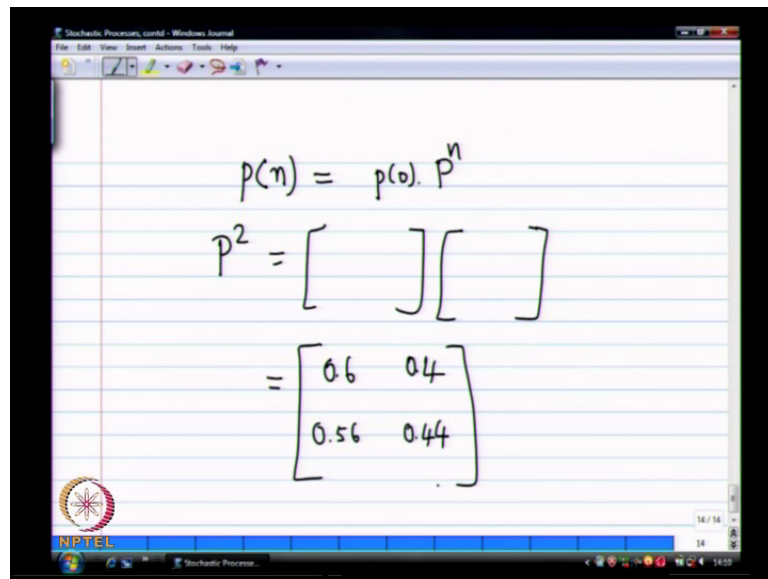 Stochastic Processes, contd - Windows Journal
File Edit View Insert Actions Tools Help
p(n) = p(0). P^n
P^2 = [ ] [ ]
= [ 0.6 0.4
0.56 0.44 ]
NPTEL
14 / 14
14
Stochastic Processe...
14:10